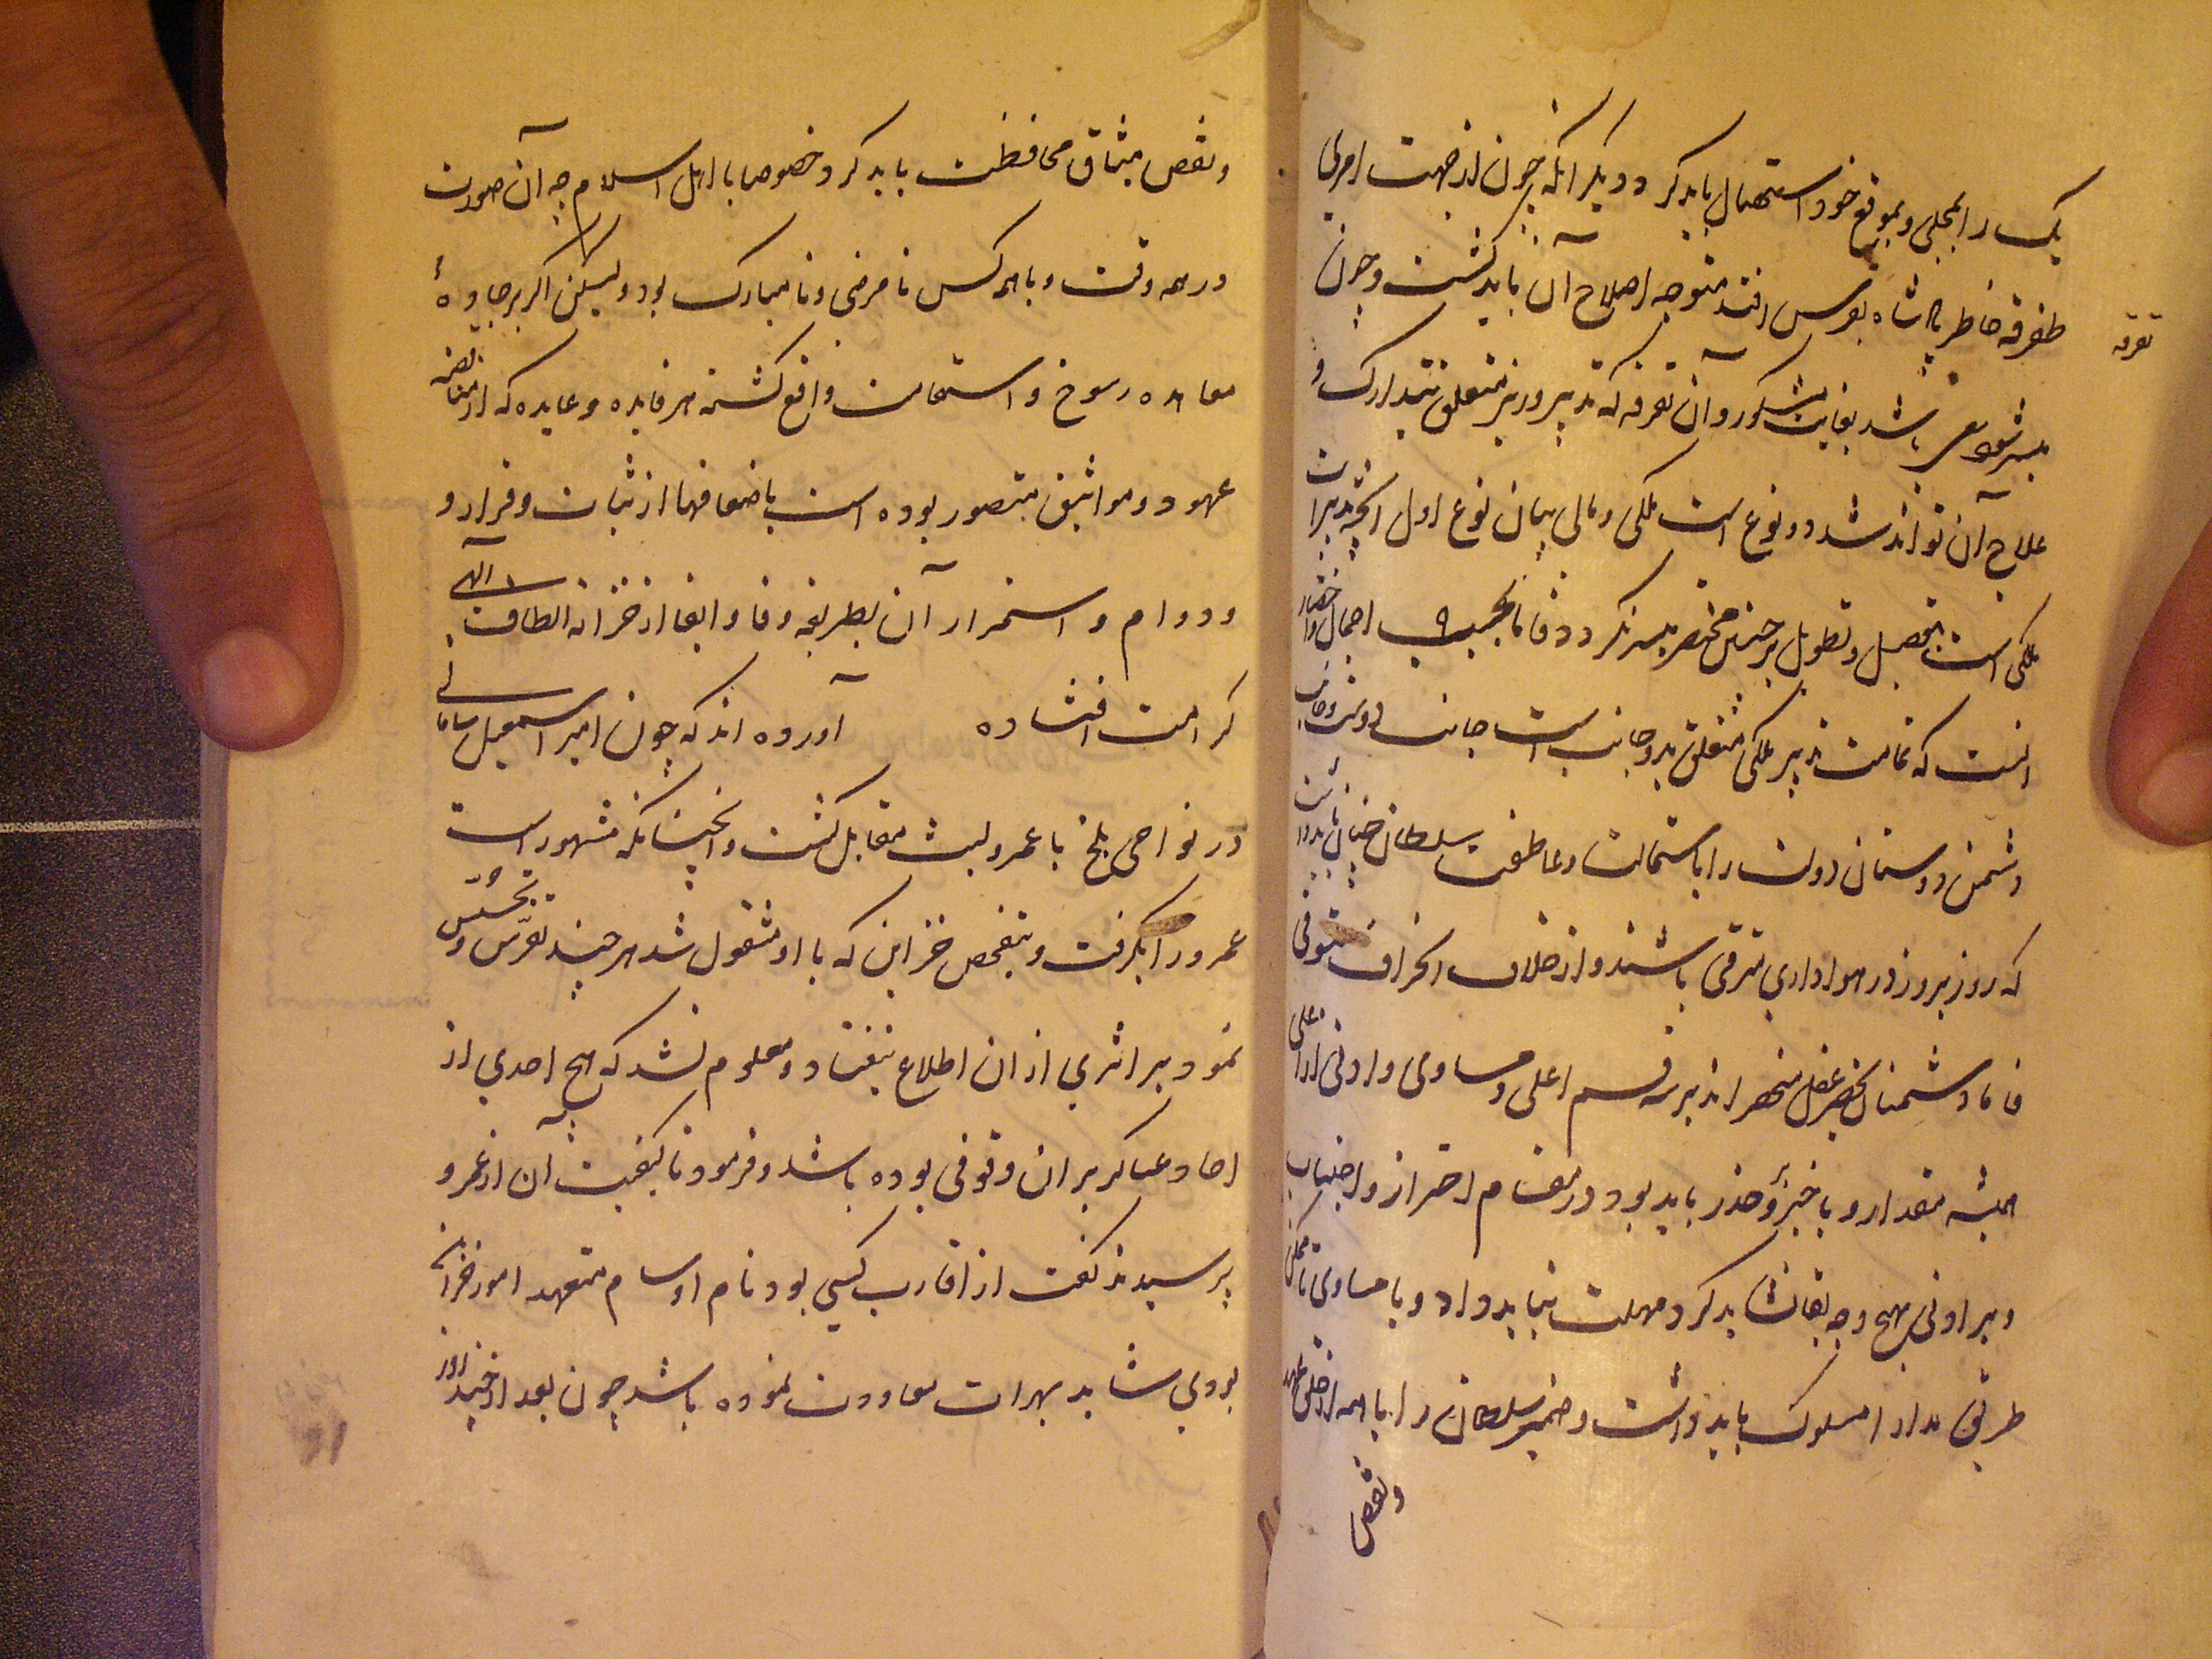 یک را بمحلی و بموقع خود استعمال باید کرد و دیگر آنکه چون از جهت امری
طفرقه خاطر پادشاه بعرس افتد متوجه اصلاح آن باید گشت و چون
تفرقه
میسر شود سعی باشد بغایت مشکور و آن تفرقه که تدبیر وزیر متعلق بتدارک و
علاج آن تواند شد دو نوع است ملکی و مالی بیان نوع اول آنچه تدبیرات
ملکی است بتفصیل و تطویل در چنین مختصر میسر نگردد فاما بحسب اجمال و اختصار
آنست که غایت تدبیر ملکی متعلق بدو جانب است جانب دوست و جانب
دشمن دوستان دولت را باستمالت و عاطفت سلطان چنان باید داشت
که روز بروز در هواداری مترقی باشند و از خلاف انحراف متوقی
فاما دشمنان بحصر عقل منحصراند بر سه قسم اعلی و مساوی و ادنی از اعلی
همیشه مقدار و با خبر و حذر باید بود در مقام احتراز و اجتناب
و بر ادنی بهیچ وجه بقا نشاید کرد و مهلت نباید داد و با مساوی تا ممکن
طریق مدارا مسلوک باید داشت و ضمیر سلطان را با همه از خلف عهد
و نقض
و نقض میثاق محافظت باید کرد خصوصا با اهل اسلام چه آن صورت
در همه وقت و با همه کس نامرضی و نامبارک بود و لیکن اگر بر جاده
معاهده رسوخ و استقامت واقع گشته هر فایده و عایده که از مناقضه
عهود و مواثیق متصور بوده است باضعافها از ثبات و قرار و
و دوام و استمرار آن بطریقه وفا و ایفا از خزانه الطاف الهی
کرامت افتاده آورده اند که چون امیر اسمعیل سامانی
در نواحی بلخ با عمرو لیث مقابل گشت و آنچنانکه مشهور است
عمرو را بگرفت و بتفحص خزاین که با او مشغول شد هر چند تفرس و تجسس
نمود بر اثری از ان اطلاع نیفتاد و معلوم نشد که هیچ احدی از
احاد عساکر بر ان وقوفی بوده باشد و فرمود تا کیفیت آن از عمرو
پرسیدند گفت از اقارب کسی بود نام او سام متعهد امور خزانه
بودی شاید بهرات معاودت نموده باشد چون بعد از چند روز